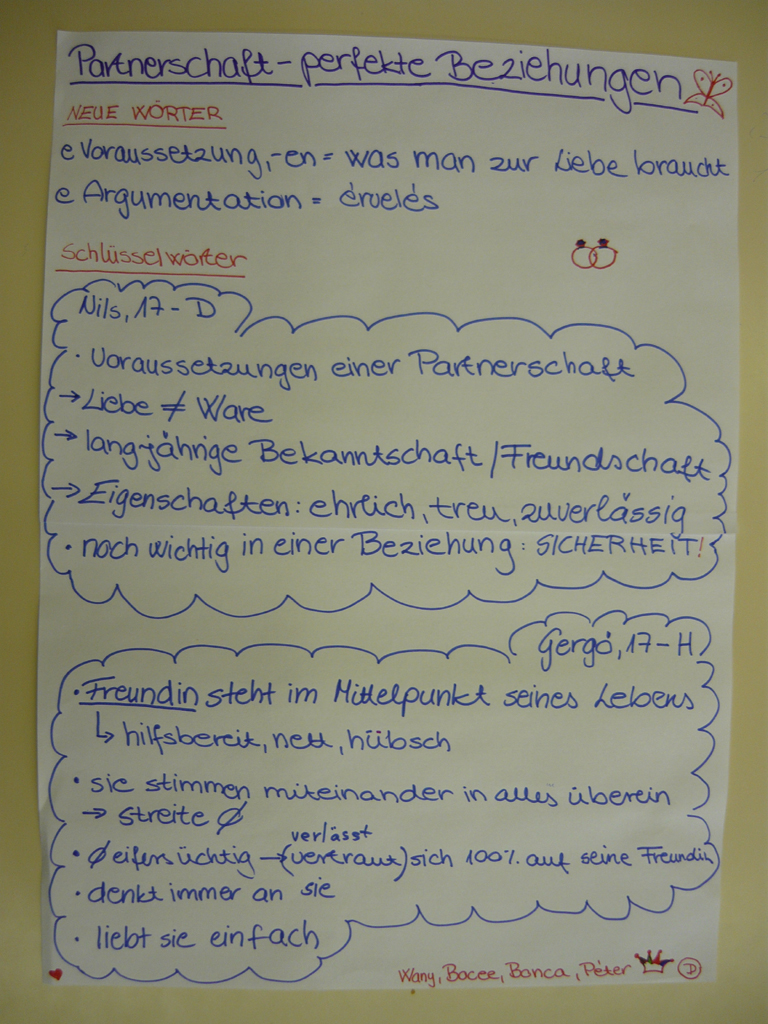 Partnerschaft - perfekte Beziehungen
NEUE WÖRTER
e Voraussetzung,-en = was man zur Liebe braucht
e Argumentation = érvelés
Schlüsselwörter
Nils, 17 - D
· Voraussetzungen einer Partnerschaft
→ Liebe ≠ Ware
→ langjährige Bekanntschaft / Freundschaft
→ Eigenschaften: ehrlich, treu, zuverlässig
· noch wichtig in einer Beziehung: SICHERHEIT!
Gergő, 17 - H
· Freundin steht im Mittelpunkt seines Lebens
↳ hilfsbereit, nett, hübsch
· sie stimmen miteinander in alles überein
→ streite Ø
verlässt
· Ø eifersüchtig → (vertraut) sich 100% auf seine Freundin
· denkt immer an sie
· liebt sie einfach
Wany, Bocee, Bonca, Péter D